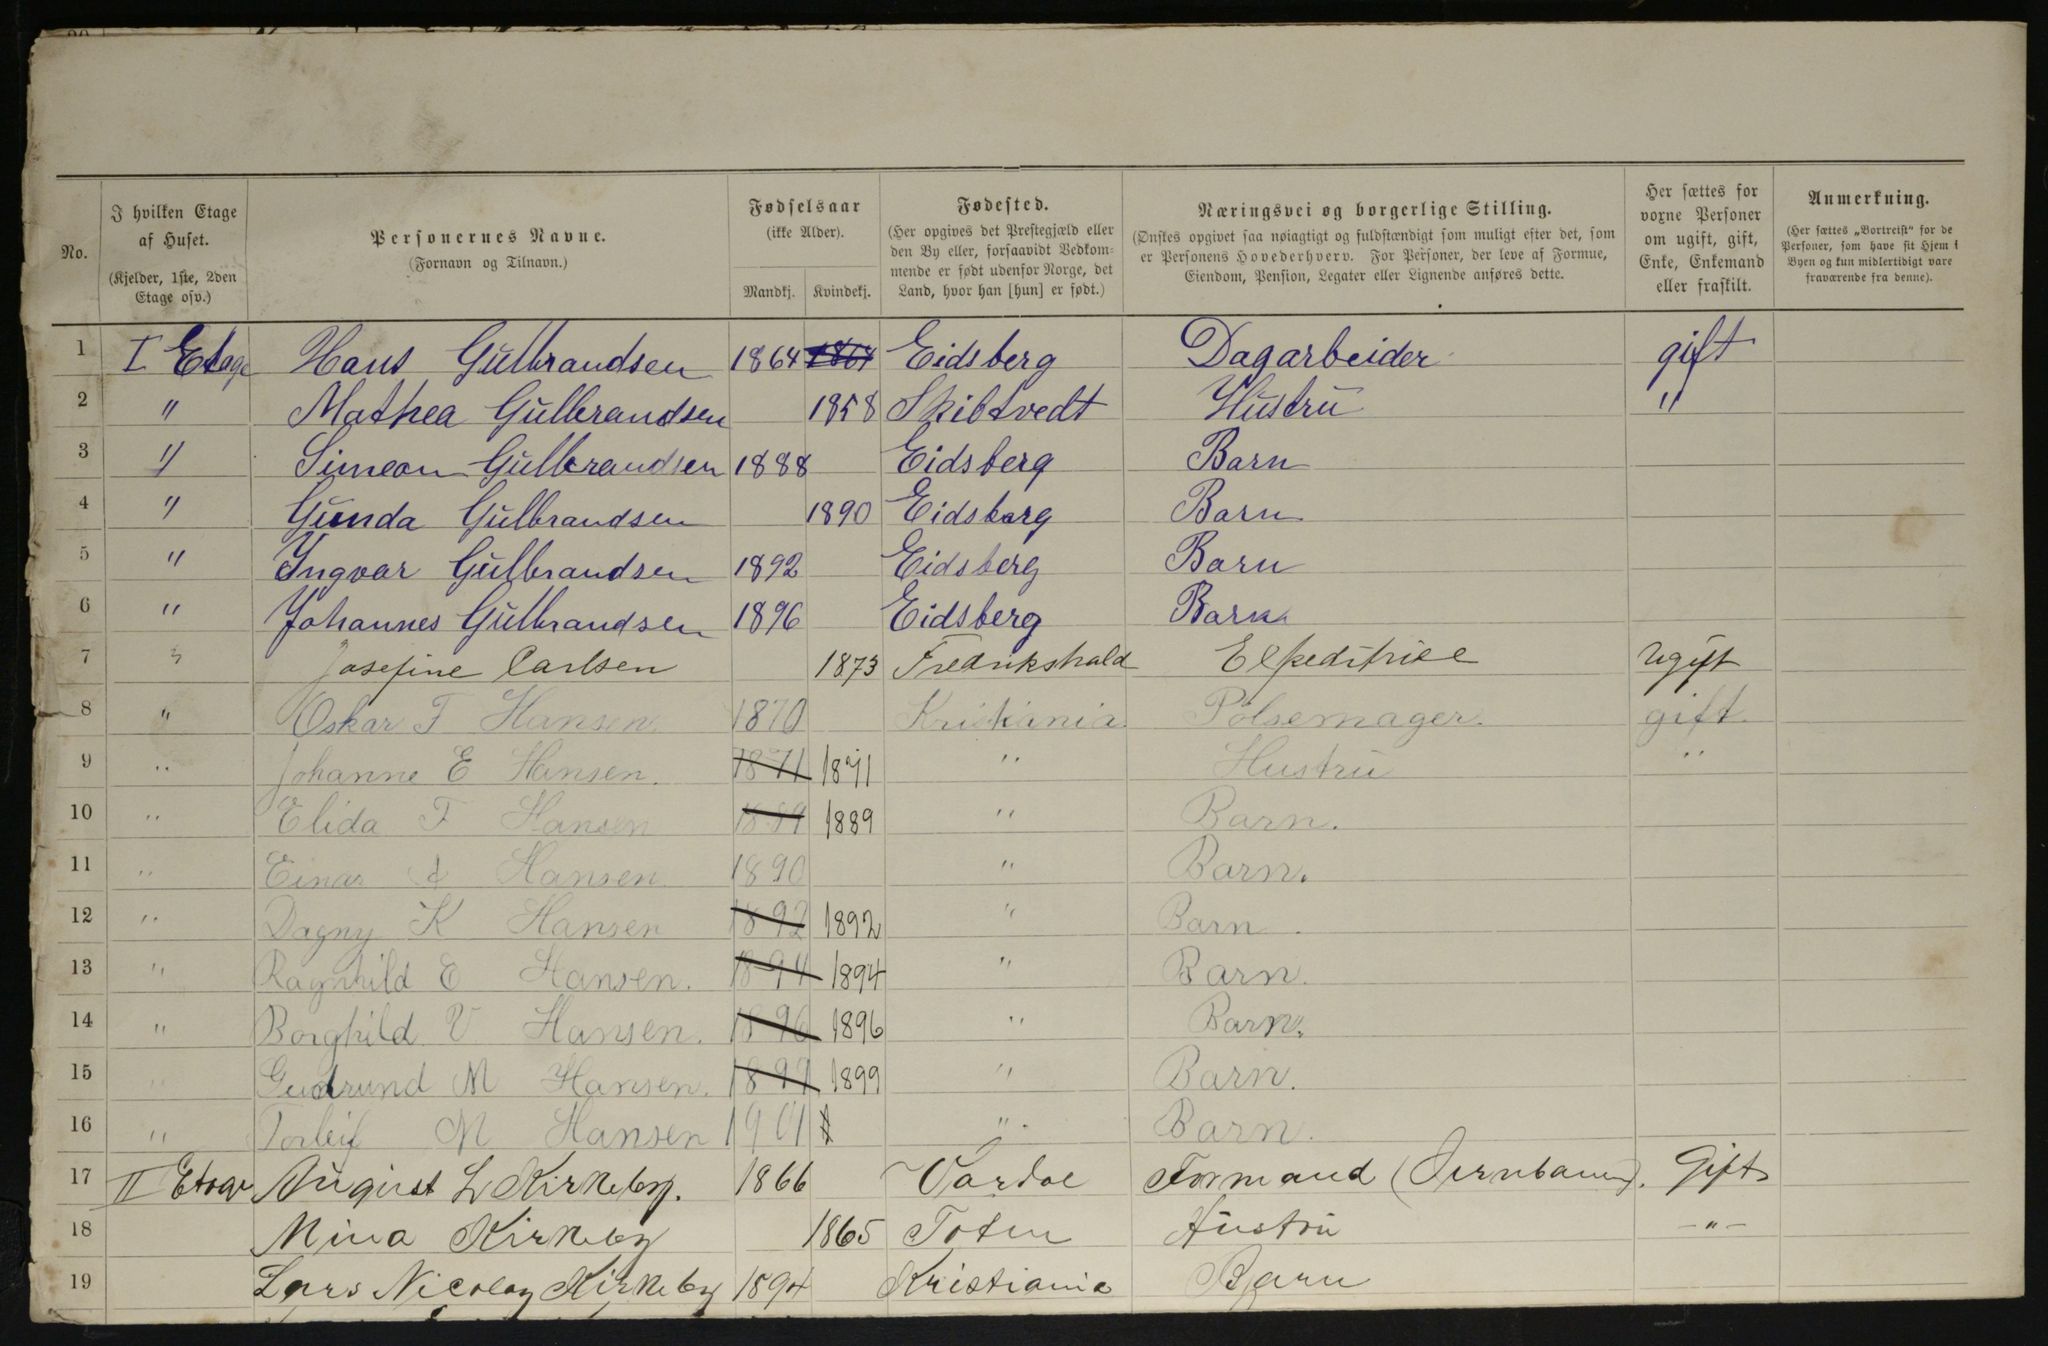 No.
I hvilken Etage af Huset. (Kjelder, 1ste, 2den Etage osv.)
Personernes Navne. (Fornavn og Tilnavn.)
Fødselsaar (ikke Alder).
Mandkj. Kvindekj.
Fødested. (Her opgives det Prestegjæld eller den By eller, forsaavidt Vedkommende er født udenfor Norge, det Land, hvor han [hun] er født.)
Næringsvei og borgerlige Stilling. (Ønskes opgivet saa nøiagtigt og fuldstændigt som muligt efter det, som er Personens Hovederhverv. For Personer, der leve af Formue, Eiendom, Pension, Legater eller Lignende anføres dette.
Her sættes for voxne Personer om ugift, gift, Enke, Enkemand eller fraskilt.
Anmerkning. (Her sættes „Bortreist" for de Personer, som have sit Hjem i Byen og kun midlertidigt vare fraværende fra denne).
1 I Etage Hans Gulbrandsen 1864 1864 Eidsberg Dagarbeider gift
2 " Mathea Gulbrandsen 1858 Skibtvedt Hustru "
3 " Simeon Gulbrandsen 1888 Eidsberg Barn
4 " Gunda Gulbrandsen 1890 Eidsberg Barn
5 " Yngvar Gulbrandsen 1892 Eidsberg Barn
6 " Johannes Gulbrandsen 1896 Eidsberg Barn
7 " Josefine Carlsen 1873 Fredrikshald Expeditrice Ugift
8 " Oskar F Hansen 1870 Kristiania Pölsemager. gift
9 " Johanne E Hansen. 1871 1871 " Hustru "
10 " Elida F Hansen 1889 1889 " Barn.
11 " Einar Hansen 1890 " Barn.
12 " Dagny K Hansen 1892 1892 " Barn
13 " Ragnhild E Hansen. 1894 1894 " Barn.
14 " Borghild V Hansen. 1896 1896 " Barn.
15 " Gudrund M Hansen. 1899 1899 " Barn.
16 " Torleif M Hansen 1901 " Barn.
17 II Etage August L Kirkeby. 1866 Vardoe Formand (Jernbanen). Gift
18 Mina Kirkeby 1865 Toten Hustru -"-
19 Lars Nicolay Kirkeby 1894 Kristiania Barn